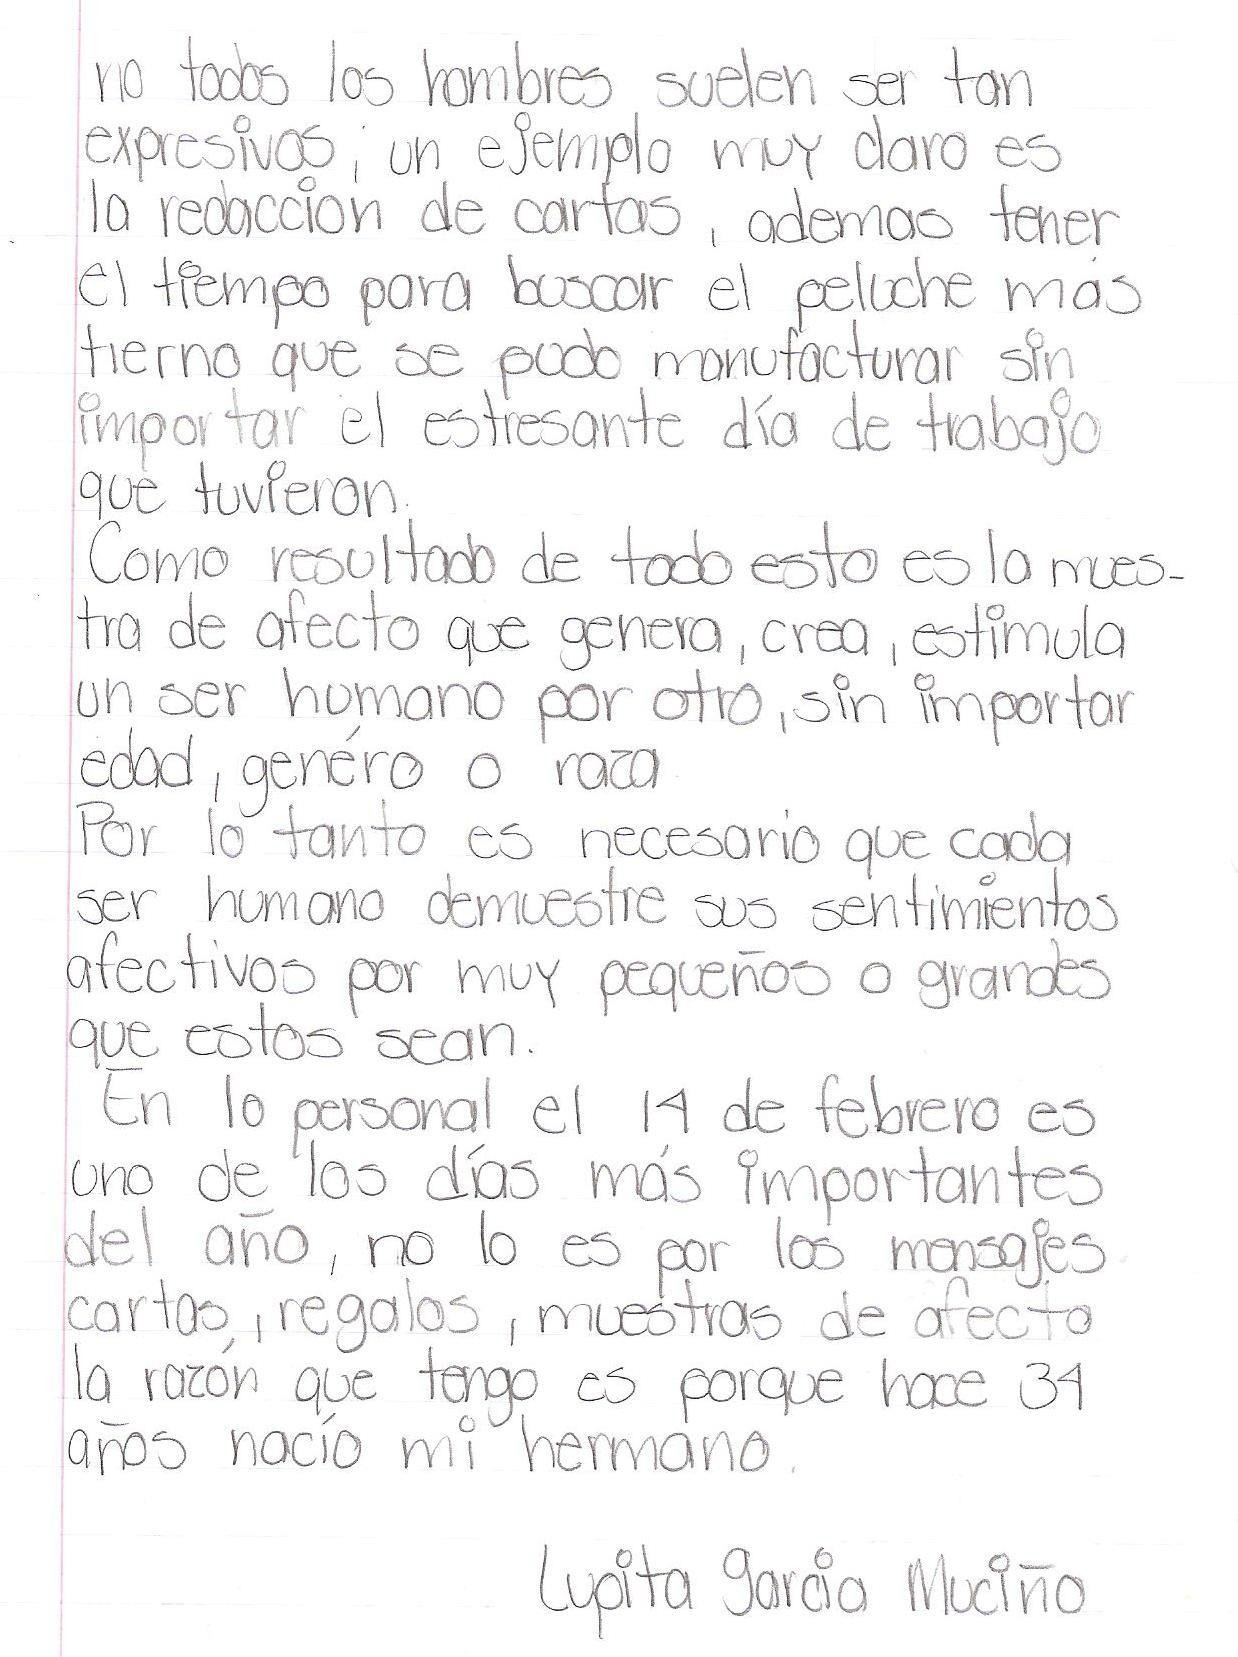 no todos los hombres suelen ser tan
expresivos; un ejemplo muy claro es
la redaccion de cartas, ademas tener
el tiempo para buscar el peluche más
tierno que se pudo manufacturar sin
importar el estresante día de trabajo
que tuvieron.
Como resultado de todo esto es la mues-
tra de afecto que genera, crea, estimula
un ser humano por otro, sin importar
edad, genéro o raza
Por lo tanto es necesario que cada
ser humano demuestre sus sentimientos
afectivos por muy pequeños o grandes
que estos sean.
En lo personal el 14 de febrero es
uno de los días más importantes
del año, no lo es por los mensajes
cartas, regalos, muestras de afecto
la razón que tengo es porque hace 34
años nacío mi hermano.
Lupita Garcia Muciño